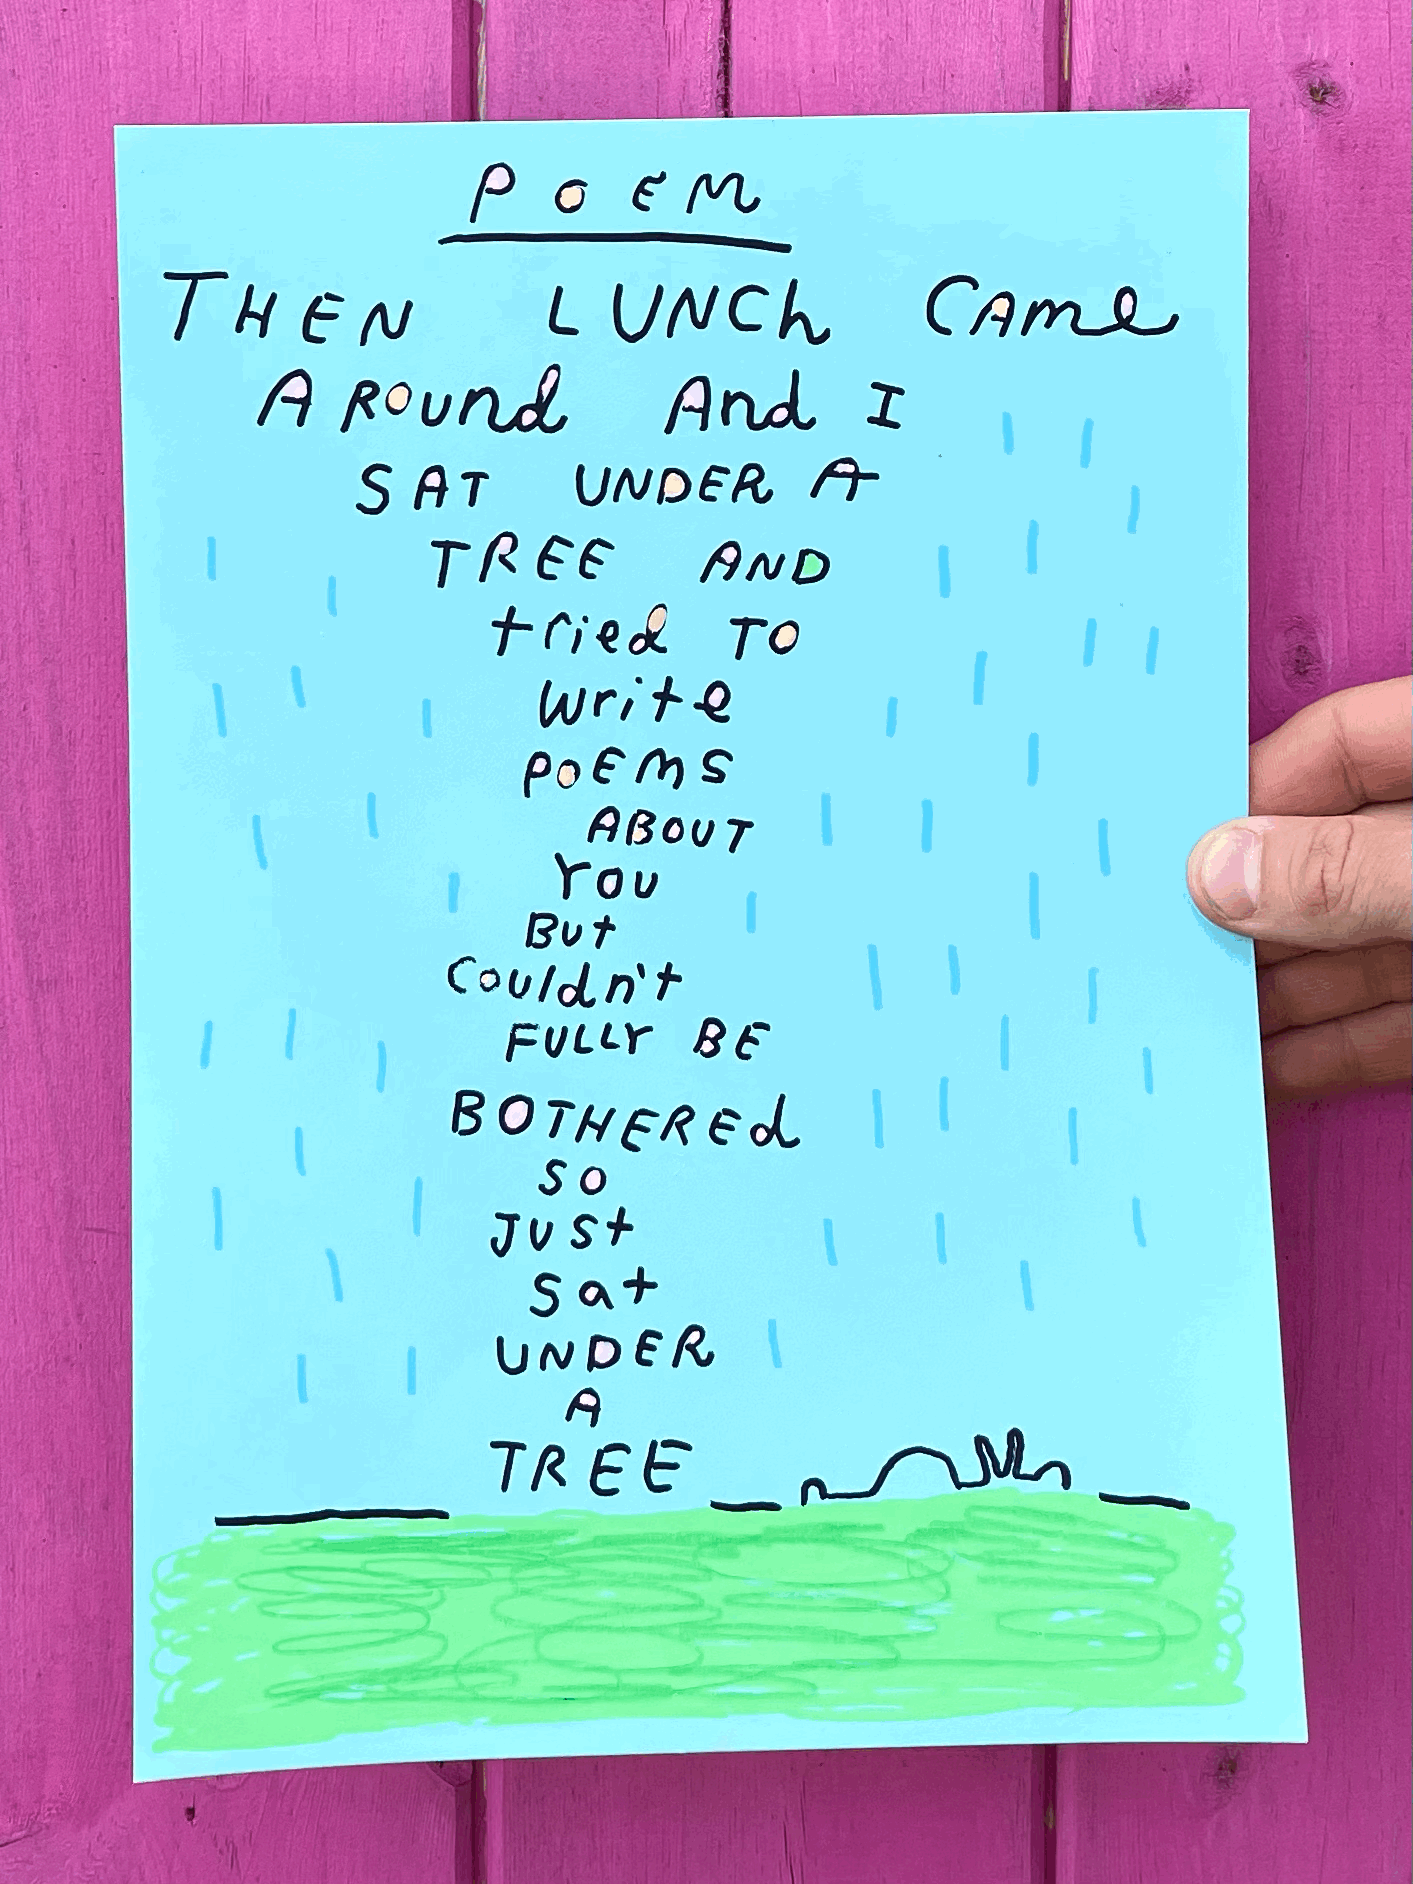 POEM
THEN LUNCh CAme
AROUnd And I
SAT UNDER A
TREE AND
tried TO
write
POEMS
ABOUT
YOU
But
Couldn't
FULLY BE
BOTHEREd
SO
JUSt
Sat
UNDER
A
TREE